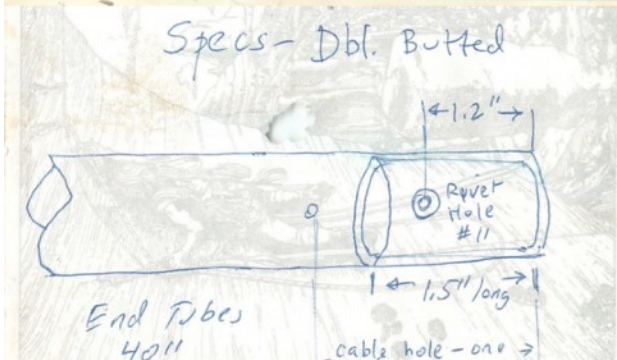 Specs - Dbl. Butted
1.2"
Ryvet
Hole
#11
1.5" long
End Tubes
40"
cable hole - one